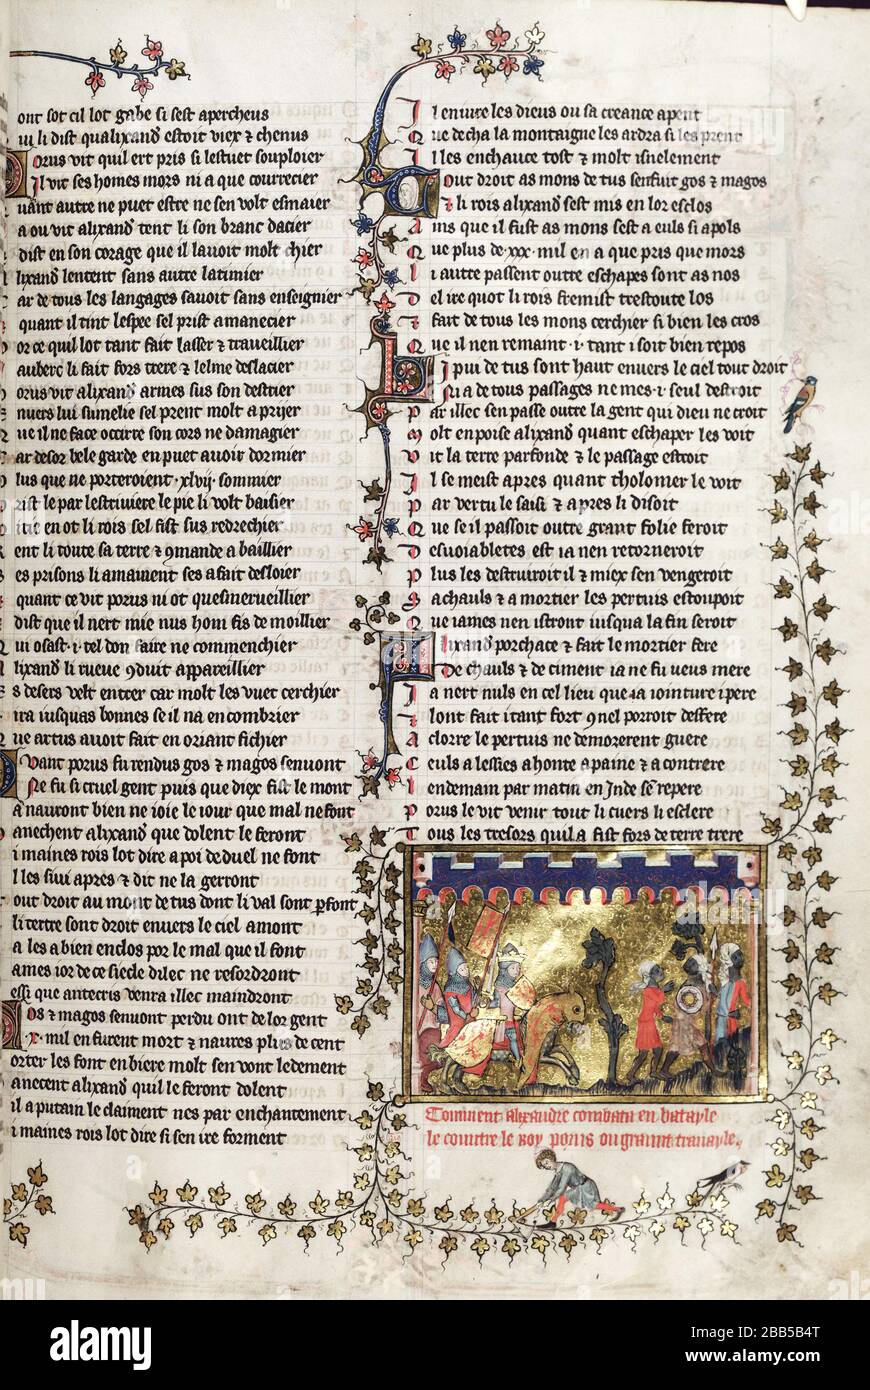 ont sot cil lot gabe si sest apercheus
ui li dist qualixand estoit viex & chenus
orus vit quil ert pris si lestuet souploier
Il vit ses homes mors ni a que courrecier
uant autre ne puet estre ne sen volt esmaier
a ou vit alixand tent li son branc dacier
dist en son corage que il lavoit molt chier
lixand lentent sans autre latimier
ar de tous les langages savoit sans enseignier
quant il tint lespee sel prist amanecier
or ce quil lot tant fait lasser & traveillier
aubere li fait fors trere & lelme deslacier
orus vit alixand armes sus son destrier
nuers lui sumelie sel prent molt a prijer
ue il ne face occirre son cors ne damagier
ar desor bele garde en puet avoir dormier
lus que ne porteroient .xlvij. sommier
rist le par lestriviere le pie li volt baisier
itie en ot li rois sel fist sus redrechier
ent li toute sa terre & 9mande a baillier
es prisons li amainent ses a fait desloier
quant ce vit porus ni ot quesmerueillier
dist que il nert mie nus hom fis de moillier
ui osast .i. tel don faire ne commenchier
lixand li rueve 9duit appareillier
s desers velt entrer car molt les vuet cerchier
ira iusquas bonnes se il na encombrier
ue artus avoit fait en oriant fichier
Vant porus fu rendus gos & magos senvont
Ne fu si cruel gent puis que diex fist le mont
a nauront bien ne ioie le iour que mal ne font
anechent alixand que dolent le feront
i maines rois lot dire a poi de duel ne font
l les suji apres & dit ne la gerront
out droit au mont de tus dont li val sont pfont
li tertre sont droit envers le ciel amont
a les a bien enclos por le mal que il font
ames ior de ce siecle dilec ne resordront
essi que antecris venra illec maindront
os & magos senvont perdu ont de lor gent
.x. mil en furent mort & naures plus de cent
orter les font en biere molt sen vont ledement
anecent alixand quil le feront dolent
il a putain le claiment nes par enchantement
i maines rois lot dire si sen ire forment
Il enivre les dieus ou sa creance apent
Que decha la montaigne les ardra si les prent
Il les enchauce tost & molt isnelement
Tout droit as mons de tus senfuit gos & magos
Et li rois alixand sest mis en lor esclos
Ains que il fust as mons sest a euls si apols
Que plus de .xxx. mil en a que pris que mors
Li autre passent outre eschapes sont as nos
Del ire quot li rois fremist trestoute los
Et fait de tous les mons cerchier si bien les cros
Que il nen remaint .i. tant i soit bien repos
Li pui de tus sont haut envers le ciel tout droit
Ni a de tous passages ne mes .i. seul destroit
Par illec sen passe outre la gent qui dieu ne croit
Molt en poise alixand quant eschaper les voit
Vit la terre parfonde & le passage estroit
Il se meist apres quant tholomer le voit
Par vertu le saisi & apres li disoit
Que se il passoit outre grant folie feroit
Desvoiabletes est ia nen retorneroit
Plus les destruiroit il & miex sen vengeroit
Sa chauls & a mortier les pertuis estoupoit
Que iames nen istront iusqua la fin seroit
Alixand porchace & fait le mortier fere
De chauls & de ciment ia ne fu veus mere
Ja nert nuls en cel lieu que ia iointure i pere
Il ont fait itant fort 9nel porroit deffere
A clorre le pertuis ne demorerent guere
Ceuls a lessies a honte a paine & a contrere
Lendemain par matin en Inde se repere
Porus le vit venir tout li cuers li esclere
Tous les tresors quil a fist fors de terre trere
Comment alixandre combati en bataylle
le contre le Roy porus ou grannt travayle.
alamy
Image ID: 2BB5B4T
www.alamy.com